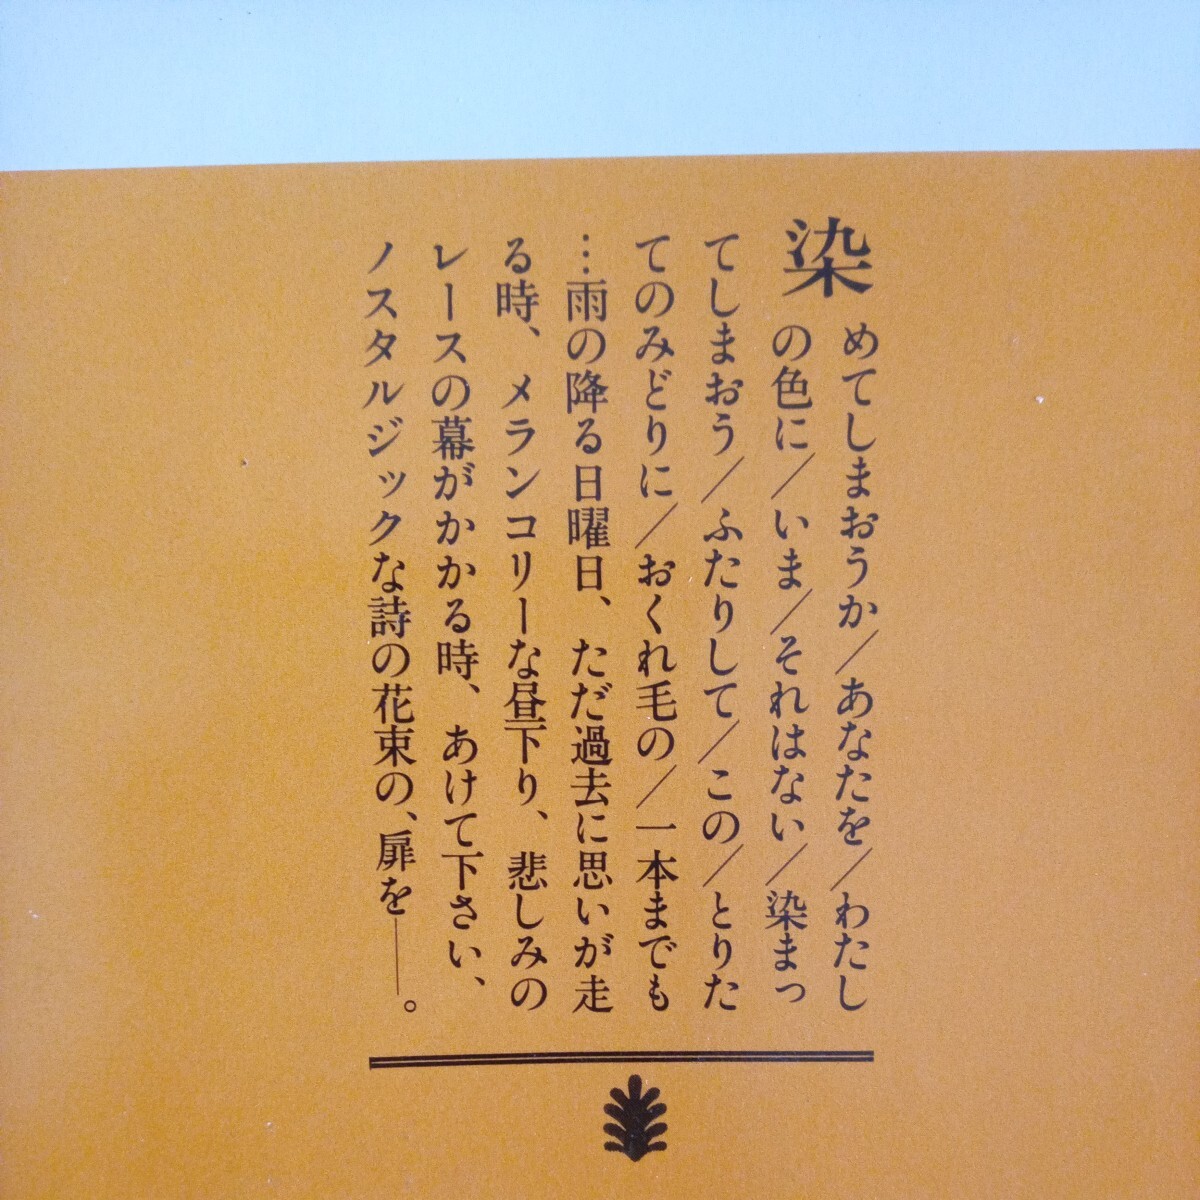 染めてしまおうか/あなたを/わたし
の色に/いま/それはない/染まっ
てしまおう/ふたりして/この/とりた
てのみどりに/おくれ毛の/一本までも
…雨の降る日曜日、ただ過去に思いが走
る時、メランコリーな昼下り、悲しみの
レースの幕がかかる時、あけて下さい、
ノスタルジックな詩の花束の、扉を——。